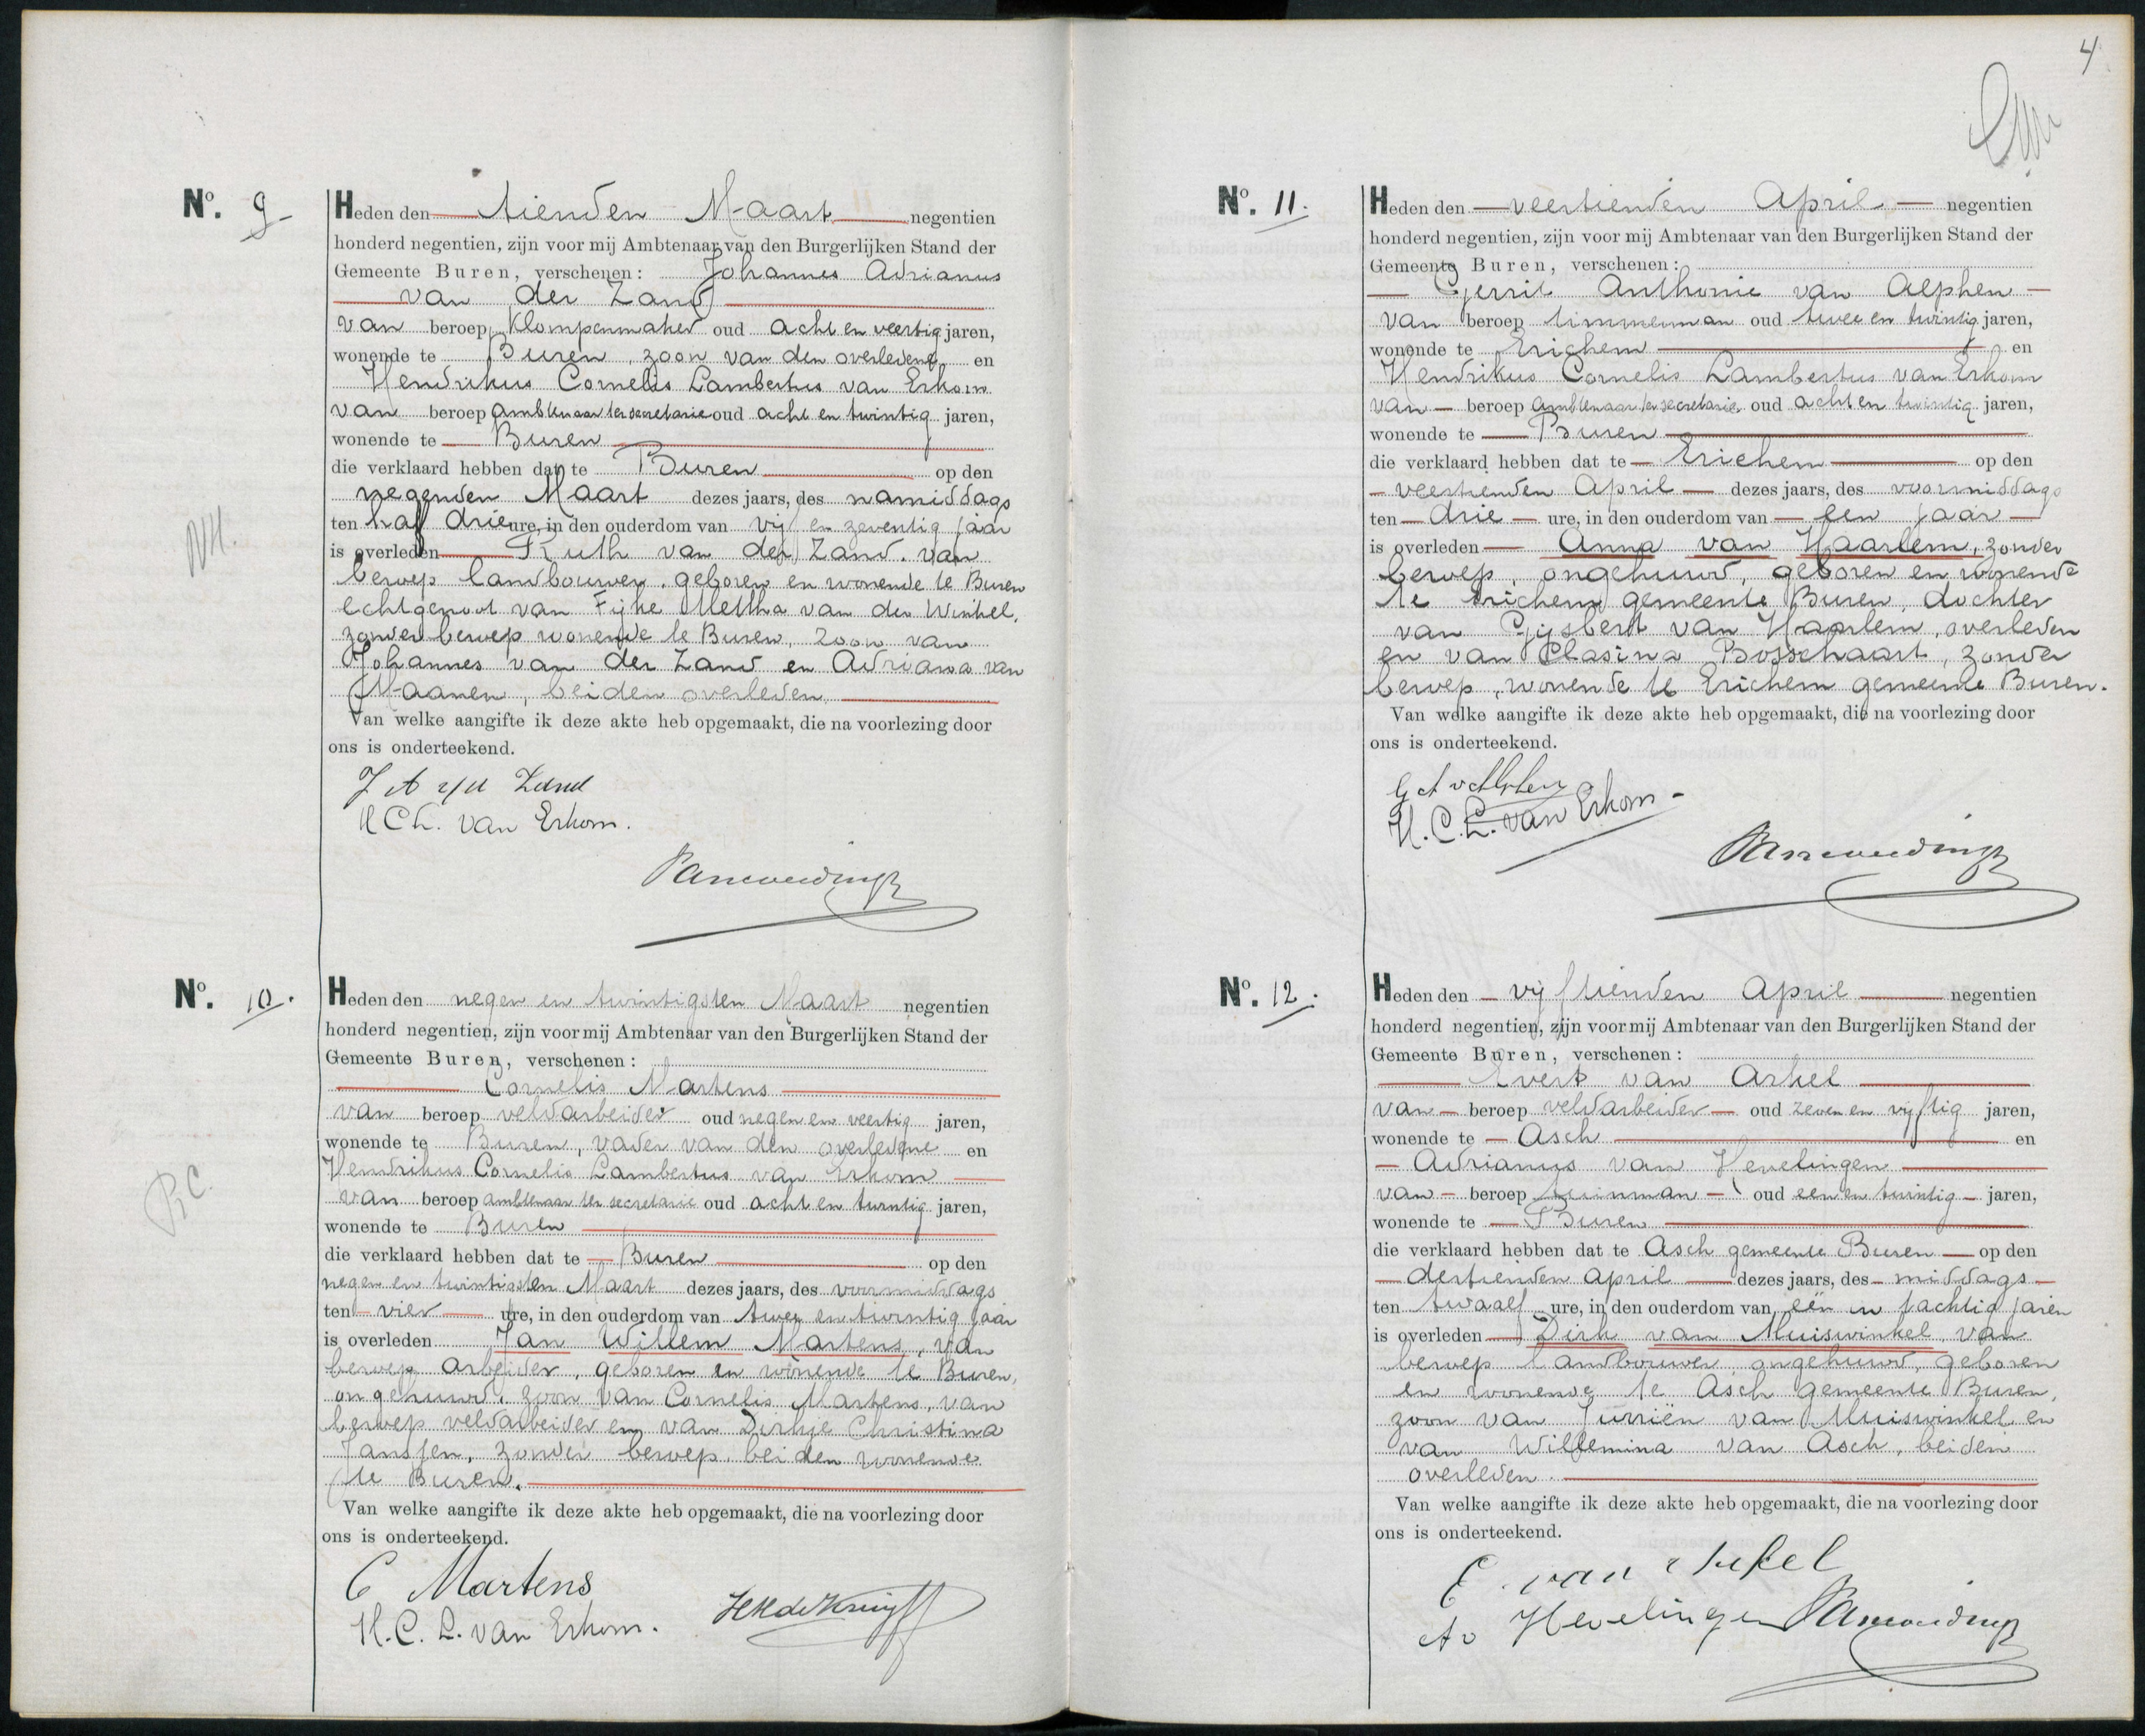 Nº. 9
Heden den tienden Maart negentien
honderd negentien, zijn voor mij Ambtenaar van den Burgerlijken Stand der
Gemeente Buren, verschenen: Johannes Adrianus
van der Zand
van beroep Klompenmaker oud acht en veertig jaren,
wonende te Buren, zoon van den overledene en
Hendrikus Cornelis Lambertus van Erkom
van beroep ambtenaar ter secretarie oud acht en twintig jaren,
wonende te Buren
die verklaard hebben dat te Buren op den
negenden Maart dezes jaars, des namiddags
ten half drie ure, in den ouderdom van vijf en zeventig jaar
is overleden Ruth van der Zand. van
beroep landbouwer, geboren en wonende te Buren
echtgenoot van Fijke Mettha van den Winkel,
zonder beroep wonende te Buren, zoon van
Johannes van der Zand en Adriana van
Maanen, beiden overleden
Van welke aangifte ik deze akte heb opgemaakt, die na voorlezing door
ons is onderteekend.
NH.
J A v/d Zand
H C L. van Erkom.
Nº. 10.
Heden den negen en twintigsten Maart negentien
honderd negentien, zijn voor mij Ambtenaar van den Burgerlijken Stand der
Gemeente Buren, verschenen:
Cornelis Martens
van beroep veldarbeider oud negen en veertig jaren,
wonende te Buren, vader van den overledene en
Hendrikus Cornelis Lambertus van Erkom
van beroep ambtenaar ter secretarie oud acht en twintig jaren,
wonende te Buren
die verklaard hebben dat te Buren op den
negen en twintigsten Maart dezes jaars, des voormiddags
ten vier ure, in den ouderdom van twee en twintig jaar
is overleden Jan Willem Martens, van
beroep arbeider, geboren en wonende te Buren,
ongehuwd, zoon van Cornelis Martens, van
beroep veldarbeider en van Dirkje Christina
Janssen, zonder beroep, beiden wonende
te Buren.
Van welke aangifte ik deze akte heb opgemaakt, die na voorlezing door
ons is onderteekend.
R.C.
C Martens
H. C. L. van Erkom.
4
Nº. 11.
Heden den veertienden April negentien
honderd negentien, zijn voor mij Ambtenaar van den Burgerlijken Stand der
Gemeente Buren, verschenen:
Gerrit Anthonie van Alphen
van beroep timmerman oud twee en twintig jaren,
wonende te Erichem en
Hendrikus Cornelis Lambertus van Erkom
van beroep ambtenaar ter secretarie oud acht en twintig jaren,
wonende te Buren
die verklaard hebben dat te Erichem op den
veertienden April dezes jaars, des voormiddags
ten drie ure, in den ouderdom van een jaar
is overleden Anna van Haarlem, zonder
beroep, ongehuwd, geboren en wonende
te Erichem gemeente Buren, dochter
van Gijsbert van Haarlem, overleden
en van Clasina Bosschaart, zonder
beroep, wonende te Erichem gemeente Buren.
Van welke aangifte ik deze akte heb opgemaakt, die na voorlezing door
ons is onderteekend.
H. C. L. van Erkom
Nº. 12.
Heden den vijftienden April negentien
honderd negentien, zijn voor mij Ambtenaar van den Burgerlijken Stand der
Gemeente Buren, verschenen:
Evert van Arkel
van beroep veldarbeider oud zeven en vijftig jaren,
wonende te Asch en
Adrianus van Hevelingen
van beroep tuinman oud een en twintig jaren,
wonende te Buren
die verklaard hebben dat te Asch gemeente Buren op den
dertienden April dezes jaars, des middags
ten twaalf ure, in den ouderdom van één en tachtig jaren
is overleden Dirk van Muiswinkel, van
beroep landbouwer, ongehuwd, geboren
en wonende te Asch gemeente Buren,
zoon van Jurriën van Muiswinkel en
van Willemina van Asch, beiden
overleden.
Van welke aangifte ik deze akte heb opgemaakt, die na voorlezing door
ons is onderteekend.
E. van Arkel
A v Hevelingen